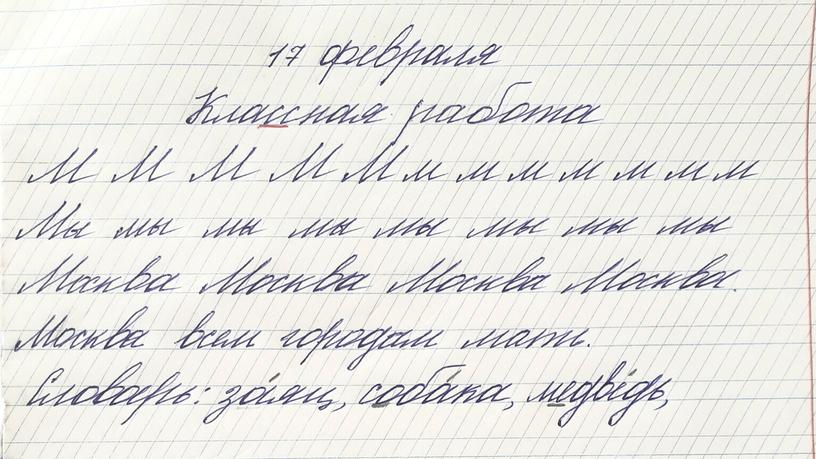 17 февраля
Классная работа
М М М М М м м м м м м м
Мы мы мы мы мы мы мы мы
Москва Москва Москва Москва.
Москва всем городам мать.
Словарь: за́яц, соба́ка, медве́дь,